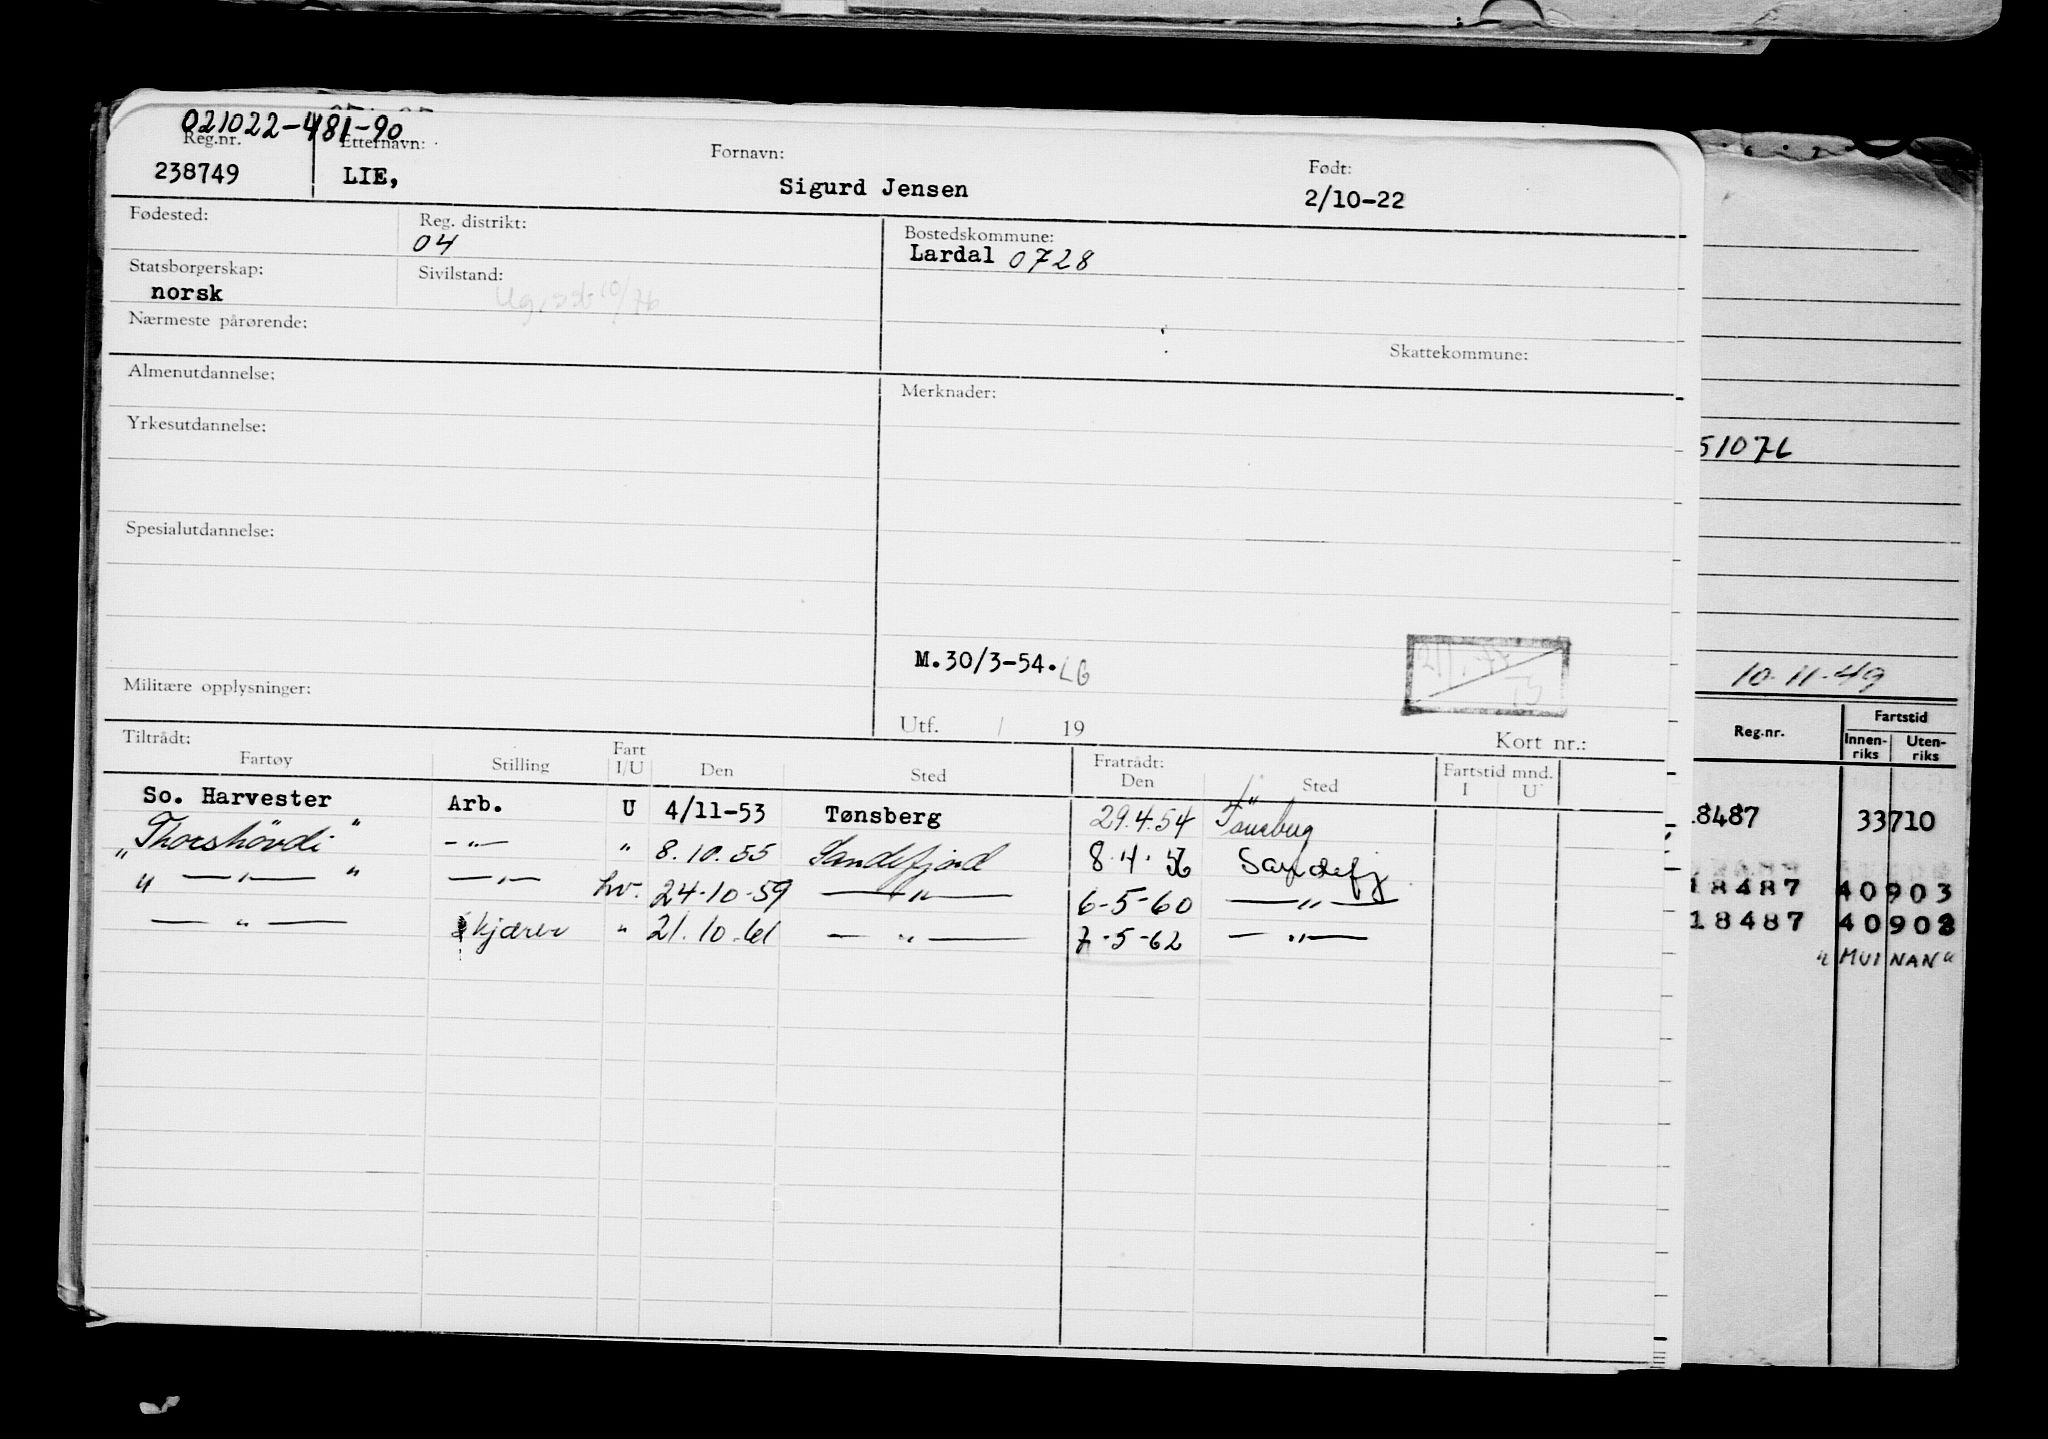 021022-481-90
Reg.nr. Etternavn: Fornavn: Født:
238749 LIE, Sigurd Jensen 2/10-22
Fødested: Reg. distrikt: Bostedskommune:
04 Lardal 0728
Statsborgerskap: Sivilstand:
norsk
Nærmeste pårørende:
Skattekommune:
Almenutdannelse: Merknader:
Yrkesutdannelse:
51076
Spesialutdannelse:
M.30/3-54. LG
10-11-49
Militære opplysninger:
Utf. / 19 Kort nr.:
Tiltrådt: Fratrådt: Fartstid mnd.
Fartøy Stilling Fart I/U Den Sted Den Sted I U
Reg.nr. Fartstid
Innen-riks Uten-riks
So. Harvester Arb. U 4/11-53 Tønsberg 29.4.54 Tønsberg
18487 33710
"Thorshövdi" -"- " 8.10.55 Sandefjord 8.4.56 Sandefj
" -"- " -"- hv. 24-10-59 -"- 6-5-60 -"-
18487 40903
-"- skjærer " 21.10.61 -"- 7-5-62 -"-
18487 40903
"MUINAN"